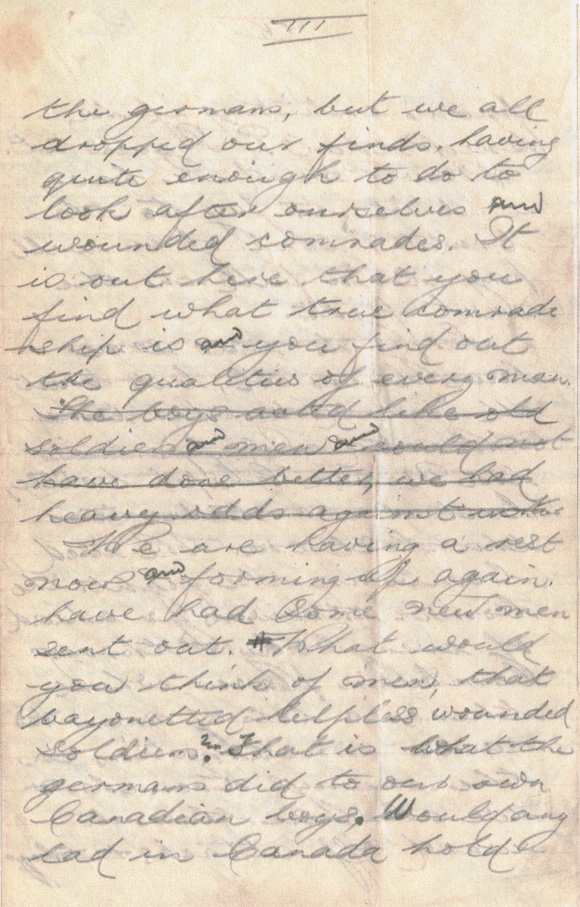 III
the germans, but we all
dropped our finds, having
quite enough to do to
look after ourselves and
wounded comrades. It
is out here that you
find what true comrade
ship is and you find out
the qualities of every man.
The boys acted like old
soldiers and men and could not
have done better, we had
heavy odds against us
We are having a rest
now and forming up again.
have had some new men
sent out. What would
you think of men, that
bayonetted helpless wounded
soldiers? That is what the
germans did to our own
Canadian boys. Would any
lad in Canada hold